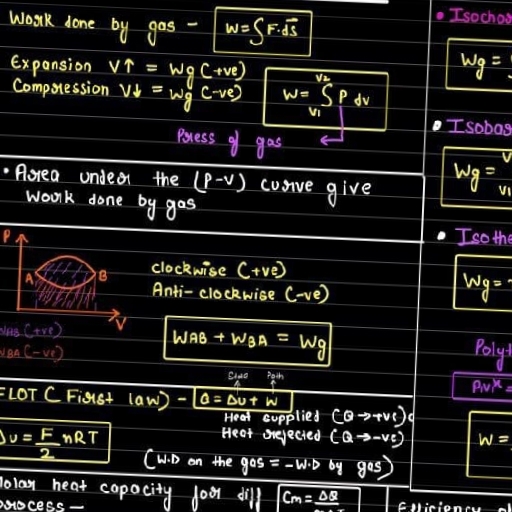 Work done by gas - W = ∫F·ds
Expansion V↑ = Wg (+ve)
Compression V↓ = Wg (-ve)
W = ∫ P dv
V2
V1
Press of gas
• Area under the (P-V) curve give
Work done by gas
P
A
B
V
WAB (+ve)
WBA (-ve)
clockwise (+ve)
Anti-clockwise (-ve)
WAB + WBA = Wg
FLOT ( First law) - Q = ΔU + W
Path
Heat supplied (Q → +ve)
Heat rejected (Q → -ve)
ΔU = F/2 nRT
(W.D on the gas = -W.D by gas)
Molar heat capacity for diff
process -
Cm = ΔQ
• Isochor
Wg =
• Isobar
Wg =
V
V1
• Isothe
Wg = -
Polyt
PVx =
W =
Efficiency of